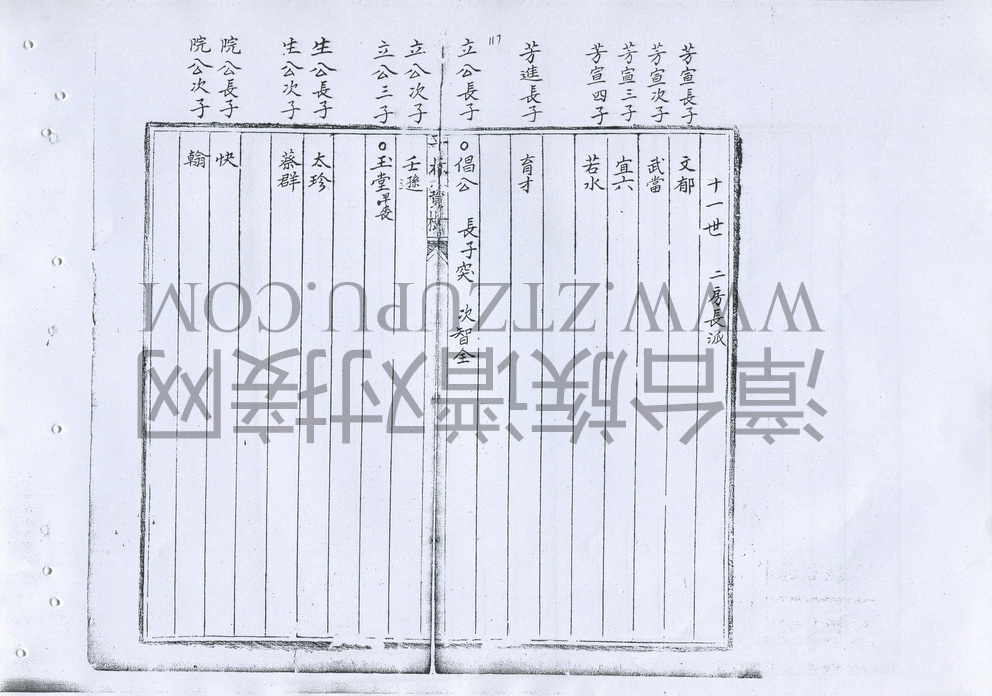 十一世 二房長派
芳宣長子 文郁
芳宣次子 武當
芳宣三子 宜六
芳宣四子 若水
芳進長子 育才
117
立公長子 倡公 長子突 次智全
立公次子 壬遜
立公三子 玉堂早喪
生公長子 太珍
生公次子 蔡群
院公長子 快
院公次子 翰
WWW.ZTZUPU.COM
漳台族谱对接网